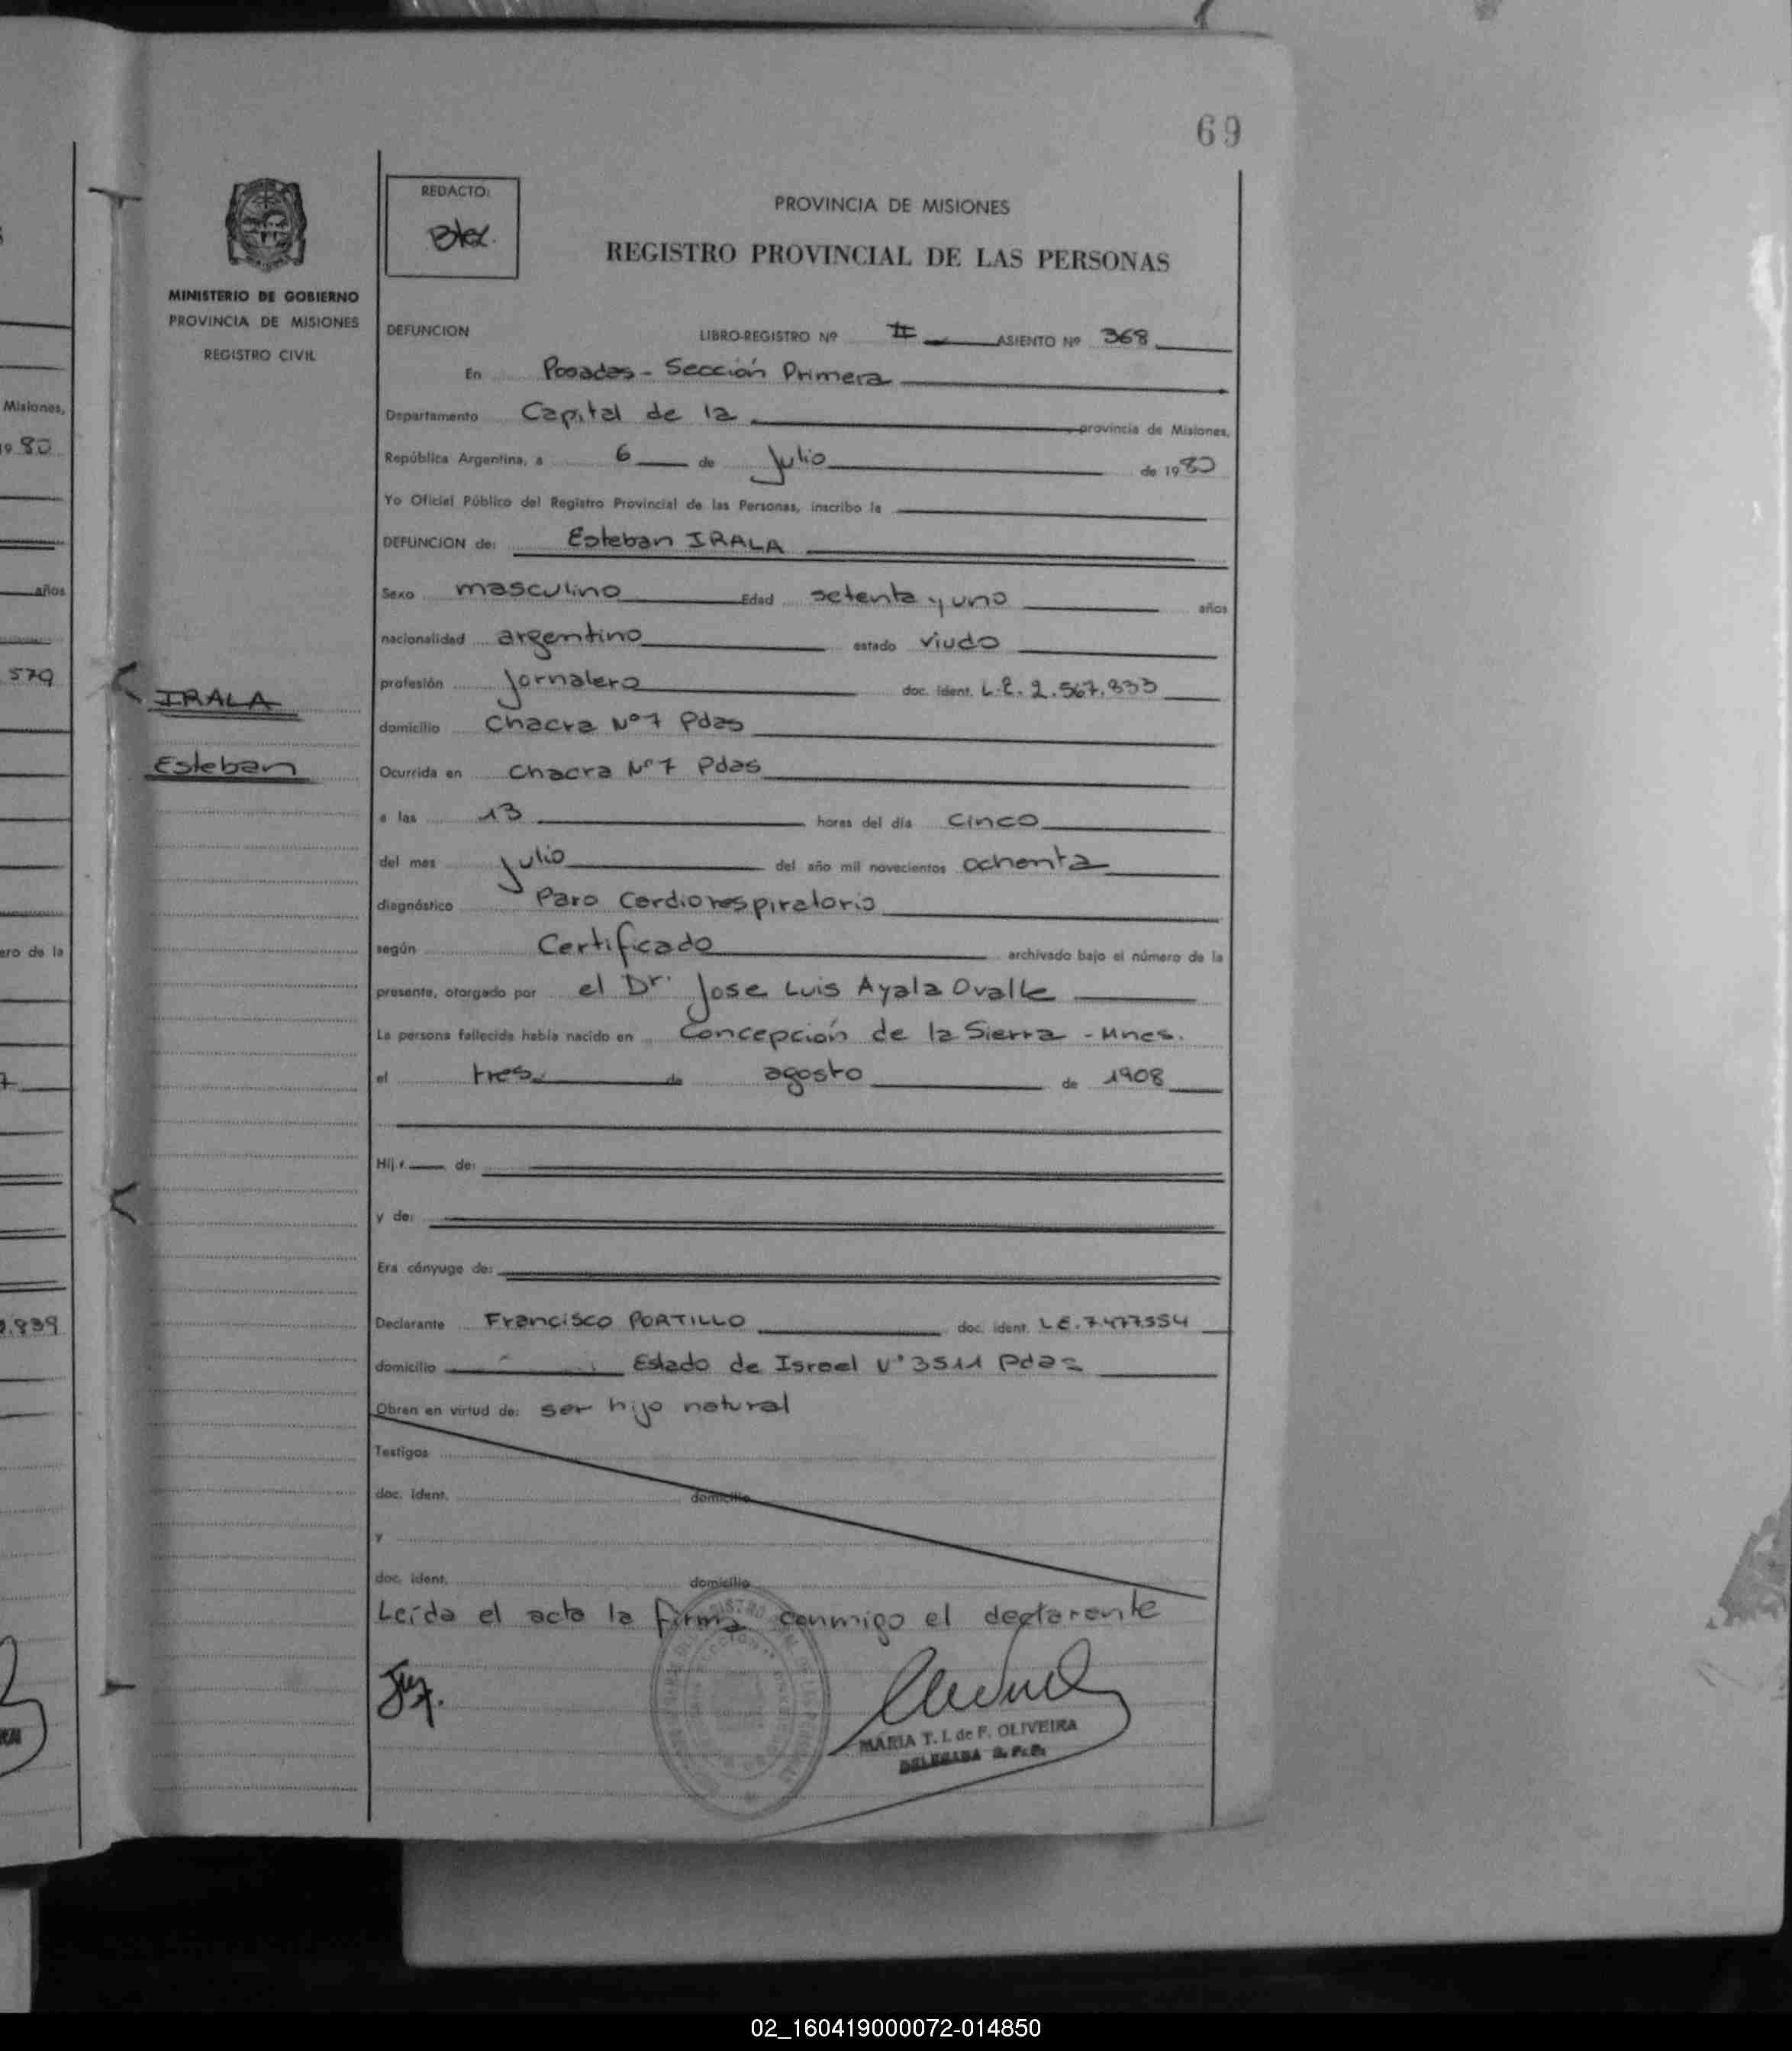 69
REDACTO:
PROVINCIA DE MISIONES
REGISTRO PROVINCIAL DE LAS PERSONAS
MINISTERIO DE GOBIERNO
PROVINCIA DE MISIONES
REGISTRO CIVIL
DEFUNCION LIBRO-REGISTRO Nº II ASIENTO Nº 368
En Posadas - Sección Primera
Departamento Capital de la provincia de Misiones,
República Argentina, a 6 de Julio de 1980
Yo Oficial Público del Registro Provincial de las Personas, inscribo la
DEFUNCION de: Esteban IRALA
Sexo masculino Edad setenta y uno años
nacionalidad argentino estado viudo
profesión Jornalero doc. ident. L.E. 2.567.833
IRALA
domicilio Chacra Nº 7 Pdas
Esteban
Ocurrida en Chacra Nº 7 Pdas
a las 13 horas del día cinco
del mes julio del año mil novecientos ochenta
diagnóstico Paro Cardiorespiratorio
según Certificado archivado bajo el número de la
presente, otorgado por el Dr. Jose Luis Ayala Ovalle
La persona fallecida había nacido en Concepción de la Sierra - Mnes.
el tres de agosto de 1908
Hij de:
y de:
Era cónyuge de:
Declarante Francisco PORTILLO doc. ident. L.E. 7477354
domicilio Estado de Israel Nº 3511 Pdas
Obran en virtud de: ser hijo natural
Testigos
doc. ident. domicilio
y
doc. ident. domicilio
Leída el acta la firma conmigo el declarante
MARIA T. I. de F. OLIVEIRA
DELEGADA R. P. P.
Misiones,
1980
años
579
ero de la
.839
02_160419000072-014850